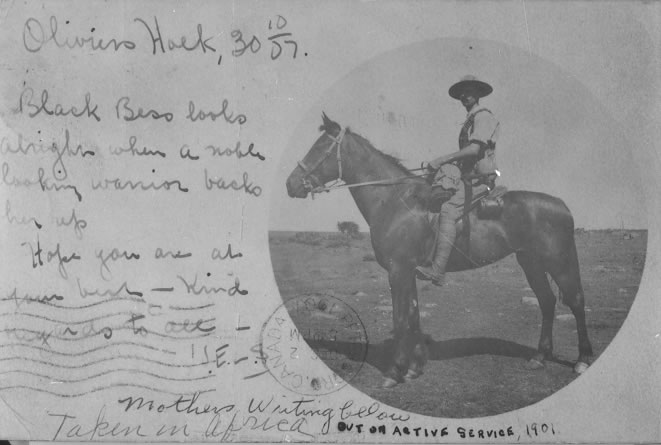 Oliviers Hoek, 30 10/07.
Black Bess looks
alright when a noble
looking warrior backs
her up
Hope you are at
your best - Kind
regards to all -
CANADA
Mothers Writing below
Taken in Africa
OUT ON ACTIVE SERVICE, 1901.